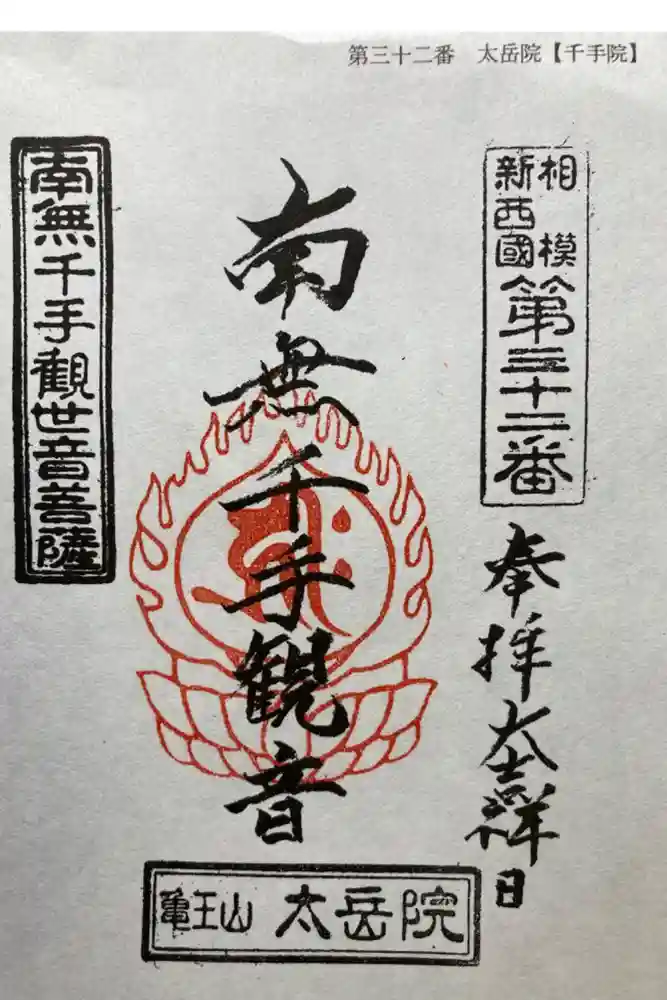 第三十二番　太岳院【千手院】
相模
新西國
第三十二番
奉拝
大吉祥日
南無千手観音
南無千手観世音菩薩
亀王山 太岳院